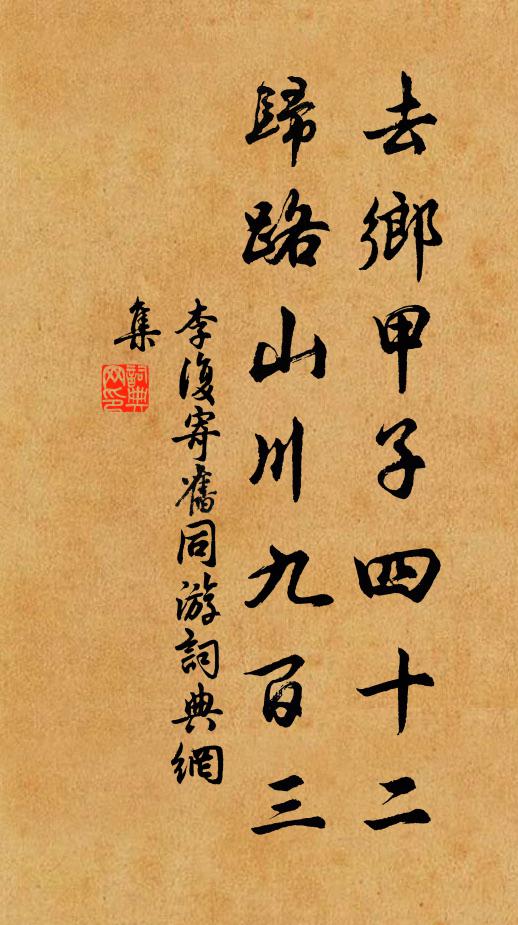 去鄉甲子四十二
歸路山川九百三
李復寄舊同游詞典網
集
詞典
网印